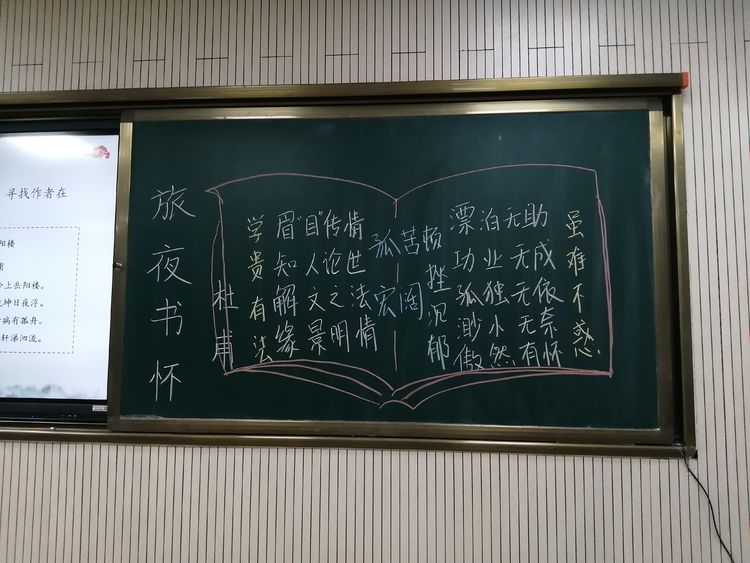 寻找作者在
阳楼
上岳阳楼。
坤日夜浮。
病有孤舟。
轩涕泗流。
旅夜书怀
杜甫
学贵有法
眉“目”传情
知人论世
解文之法
缘景明情
孤苦
宏阔
顿挫沉郁
漂泊无助
功业无成
孤独无依
渺小无奈
傲然有怀
虽难不惑.